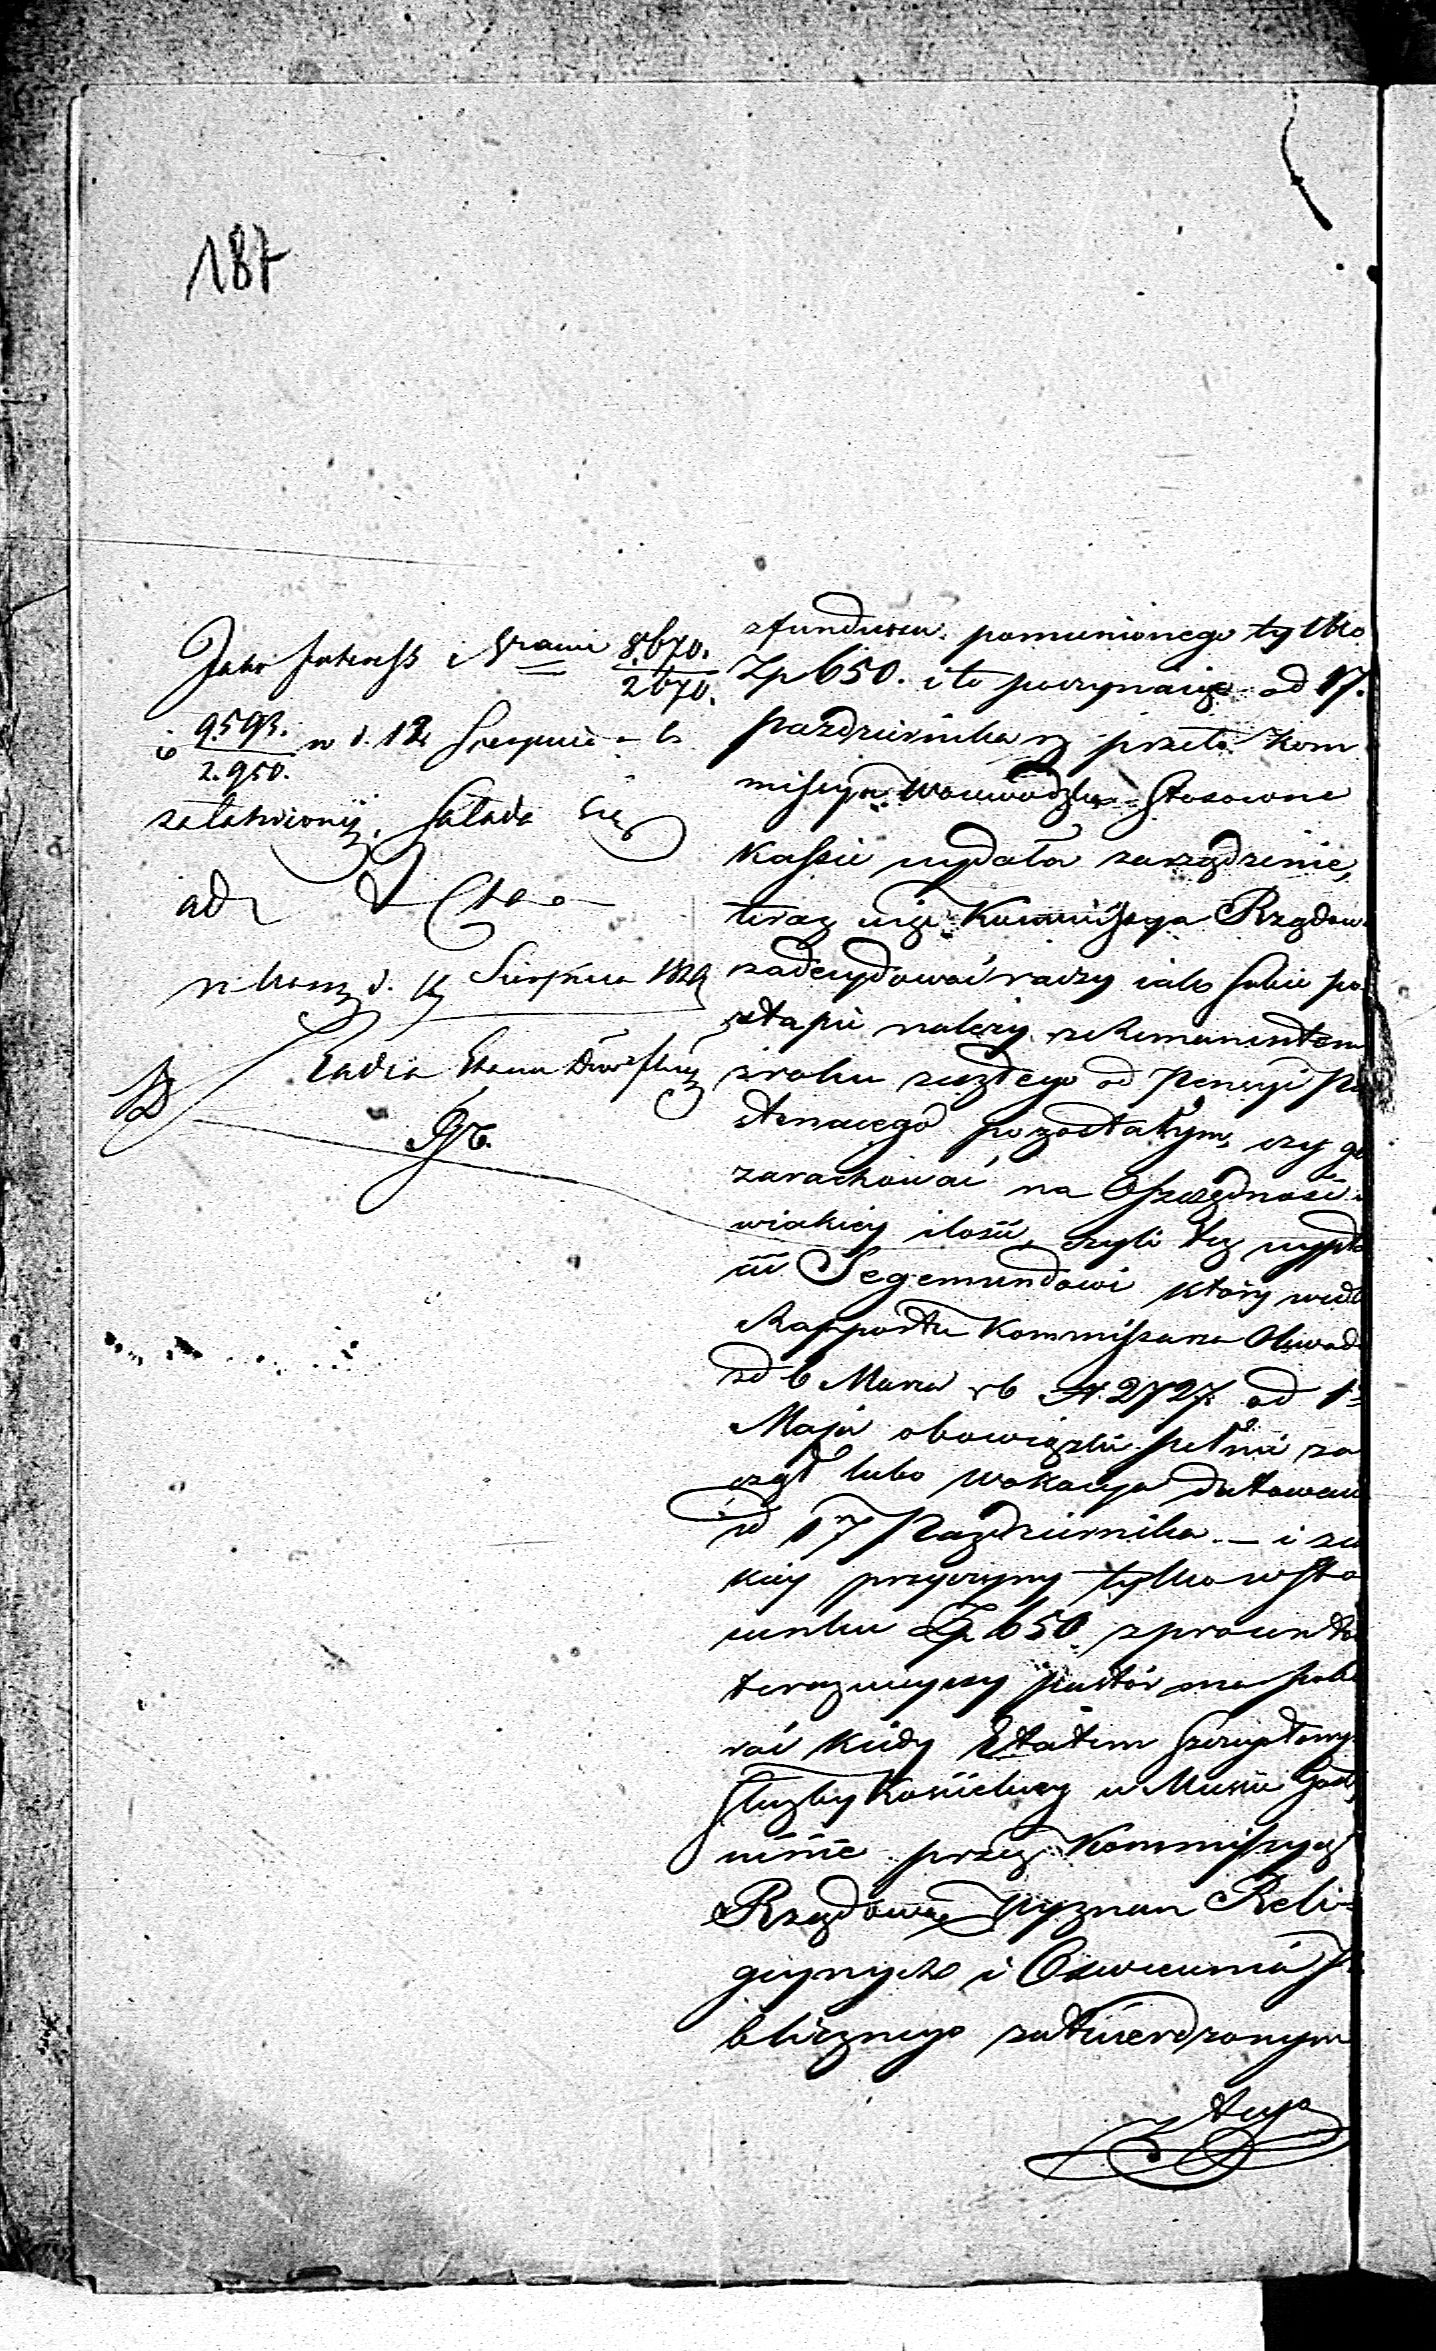 187
Jako Interess i
8670.
2670.
i 9593.
2.950.
w d. 12 Sierpnia
załatwiony, składa się
ad Acta
d. Sierpnia 1829
Radca Stanu
z funduszu pomienionego tylko
Zp 650. i to poczynaiąc od 17.
Pazdziernika przeto Kom
missya Woiewodzka stosowne
Kassie wydała zarządzenie,
teraz więc Kommissya Rządow
zadecydować raczy iako sobie po
stąpić należy z Remanentem
z roku zeszłego od Pensyi Pa
storowego pozostałym, czy go
zarachować na Oszczędność i
w iakiey ilości, czyli też wypła
cić Segemundowi który wedł
Rapportu Kommissarza Obwodu
z d 6 Marca r b N. 2727. od 1o
Maja obowiązki pełnić za
czął lubo wokacya datowana
z d 17 Pazdziernika. — i z ia
kiey przyczyny tylko w sto
sunku Zp 650
terazniejszy pastor ma pobi
rać kiedy Etatem
służby Kościelney w Mieście Gosty
ninie przez Kommissyą
Rządową Wyznan Reli-
giynych i Oswiecenia Pu
blicznego zatwierdzonym